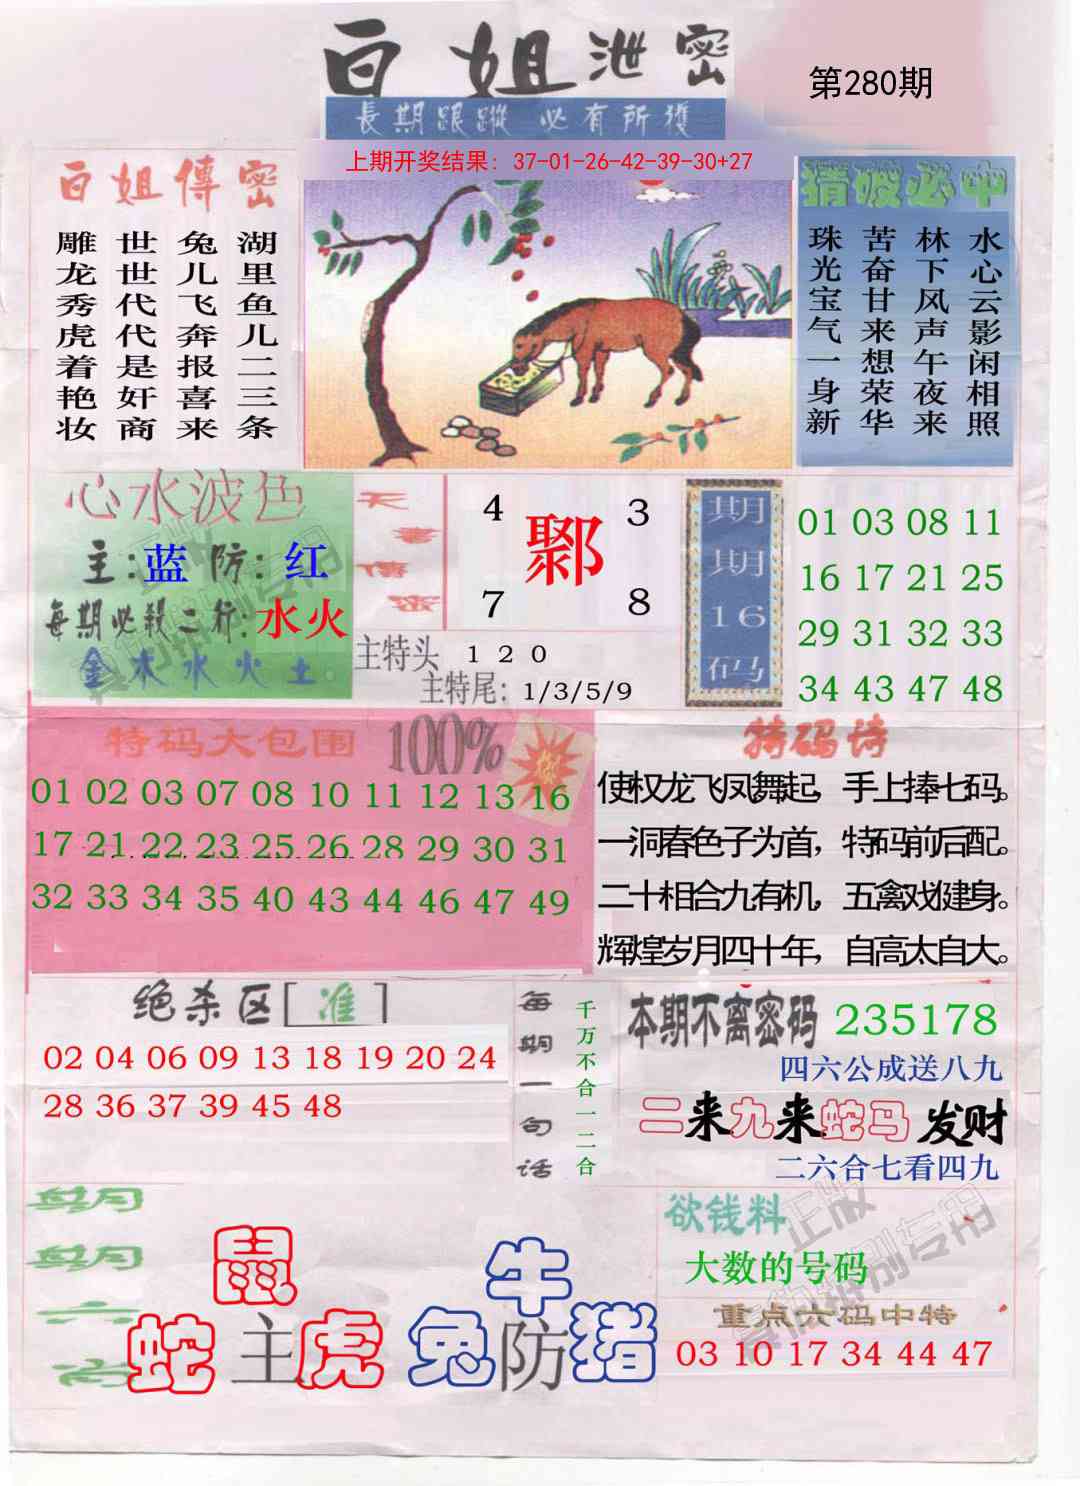 白姐泄密
第280期
長期跟蹤 必有所獲
上期开奖结果：37-01-26-42-39-30+27
白姐傳密
湖里鱼儿二三条
兔儿飞奔报喜来
世世代代是奸商
雕龙秀虎着艳妆
猜波必中
水心云影闲相照
林下风声午夜来
苦奋甘来想荣华
珠光宝气一身新
心水波色
主:蓝 防:红
每期必殺二行:水火
金木水火土
天書傳密
4 3
鄹
7 8
主特头 1 2 0
主特尾：1/3/5/9
期期16码
01 03 08 11
16 17 21 25
29 31 32 33
34 43 47 48
特码大包围 100%
01 02 03 07 08 10 11 12 13 16
17 21 22 23 25 26 28 29 30 31
32 33 34 35 40 43 44 46 47 49
特码诗
使权龙飞凤舞起，手上捧七码。
一洞春色子为首，特码前后配。
二十相合九有机，五禽戏健身。
辉煌岁月四十年，自高太自大。
绝杀区[准]
02 04 06 09 13 18 19 20 24
28 36 37 39 45 48
每期一句话
千万不合一二合
本期不离密码 235178
四六公成送八九
二来九来蛇马发财
二六合七看四九
六肖
鼠
蛇主虎
牛
兔防猪
欲钱料
大数的号码
重点六码中特
03 10 17 34 44 47